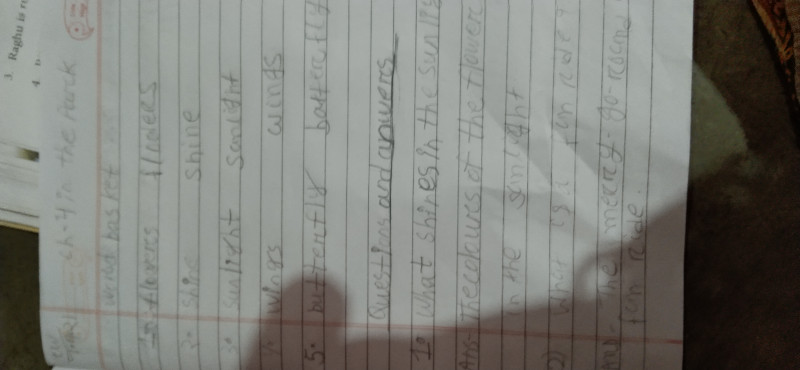 3. Raghu is
4.
ch-4 in the Park
word basket
1. flowers flowers
2. shine shine
3. sunlight sunlight
4. wings wings
5. butterfly batterfly
Questions and answers
1. What shines in the sunlig
Ans- The colours of the flower
in the sunlight
2) What is a fun ride?
Ans- The meery-go-round
fun ride.